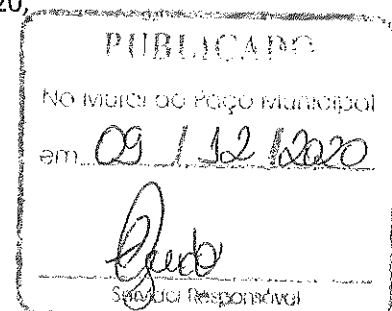 20,
PUBLICADO
No Mural do Paço Municipal
em 09 / 12 / 2020
Servidor Responsável